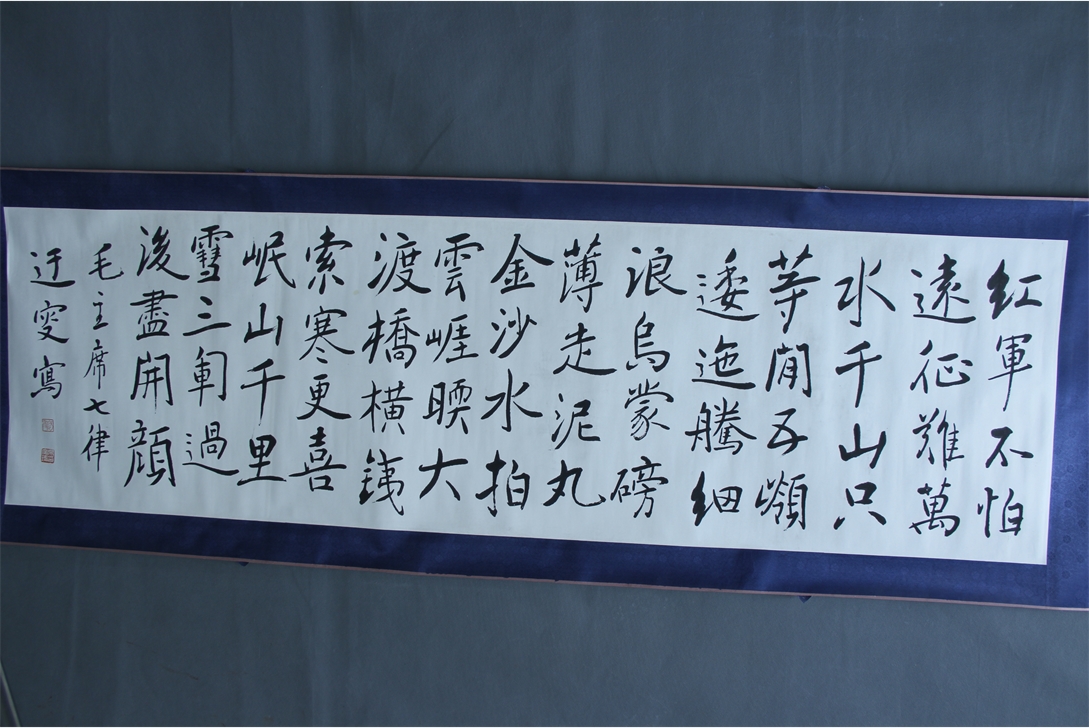 红軍不怕
遠征難萬
水千山只
等閒五嶺
逶迤騰細
浪烏蒙磅
薄走泥丸
金沙水拍
雲崕暖大
渡橋橫鐵
索寒更喜
岷山千里
雪三軍過
後盡開顏
毛主席七律
迂叟寫